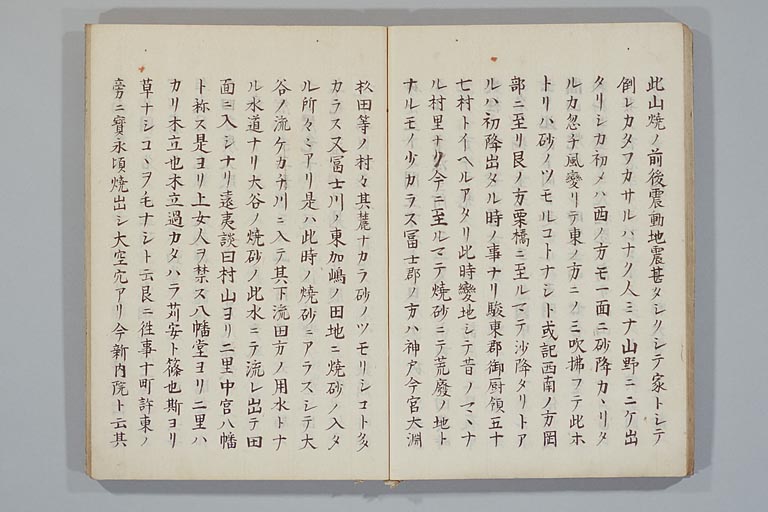 此山焼ノ前後震動地震甚タシクシテ家トシテ
倒レカタフカサルハナク人ミナ山野ニニケ出
タリシカ初メハ西ノ方モ一面ニ砂降カヽリタ
ルカ忽チ風變リテ東ノ方ニノミ吹拂フテ此ホ
トリハ砂ノツモルコトナシト或記西南ノ方岡
部ニ至リ艮ノ方栗橋ニ至ルマテ沙降タリトア
ルハ初降出タル時ノ事ナリ駿東郡御厨領五十
七村トイヘルアタリ此時變地シテ昔ノマヽナ
ル村里ナク今ニ至ルマテ焼砂ニテ荒廢ノ地ト
ナルモイ少カラス冨士郡ノ方ハ神戸今宮大淵
杦田等ノ村々其麓ナカラ砂ノツモリシコト多
カラス又冨士川ノ東加嶋ノ田地ニ焼砂ノ入タ
ル所々ミアリ是ハ此時ノ焼砂ニアラスシテ大
谷ノ流ケカチ川ニ入テ其下流田方ノ用水トナ
ル水道ナリ大谷ノ焼砂ノ此水ニテ流レ出テ田
面ニ入シナリ遠夷談曰村山ヨリ二里中宮八幡
ト祢ス是ヨリ上女人ヲ禁ス八幡堂ヨリ二里ハ
カリ木立也木立過カタハラ苅安ト篠也斯ヨリ
草ナシコヽヲ毛ナシト云艮ニ徃事十町許東ノ
旁ニ寳永頃焼出シ大空穴アリ今新内院ト云其